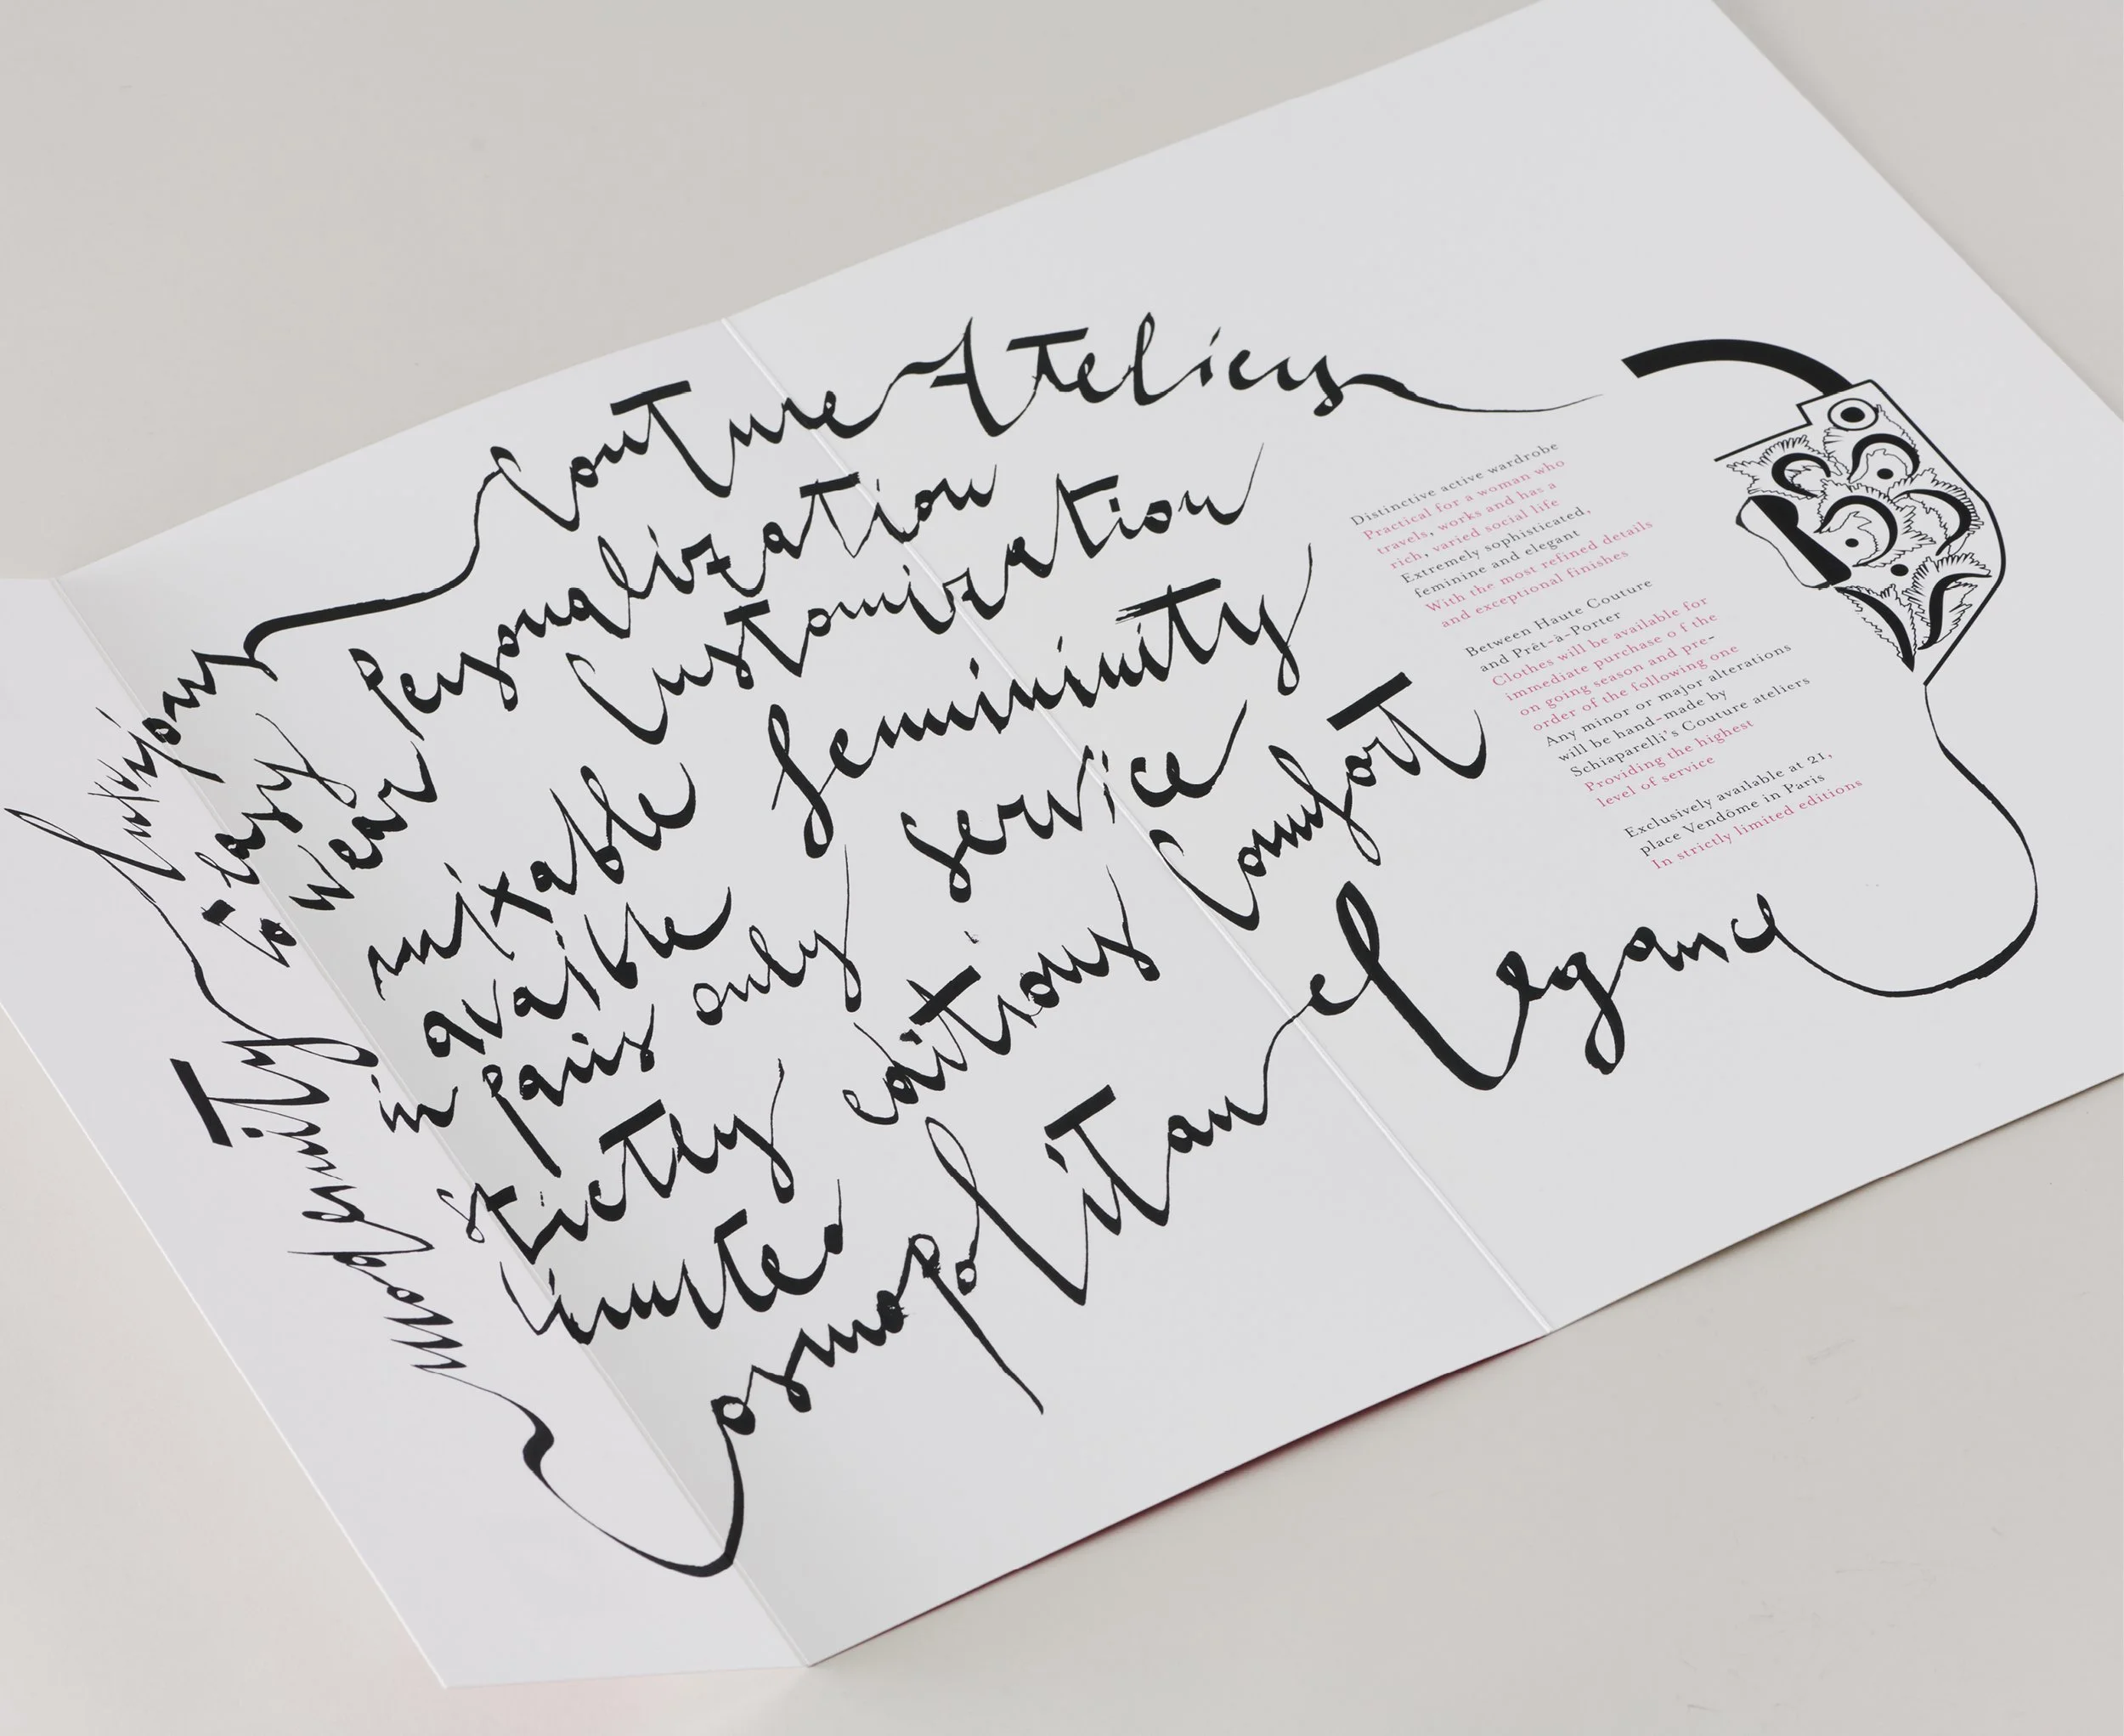 Couture Ateliers
Luxurious
Personalization
Customization
easy
to wear
mixable femininity
avaible service
in Paris only comfort
strictly editions
limited
modernity
Cosmopolitan elegance
Distinctive active wardrobe
Practical for a woman who
travels, works and has a
rich, varied social life
Extremely sophisticated,
feminine and elegant
With the most refined details
and exceptional finishes
Between Haute Couture
and Prêt-à-Porter
Clothes will be available for
immediate purchase o f the
on going season and pre-
order of the following one
Any minor or major alterations
will be hand-made by
Schiaparelli's Couture ateliers
Providing the highest
level of service
Exclusively available at 21,
place Vendôme in Paris
In strictly limited editions